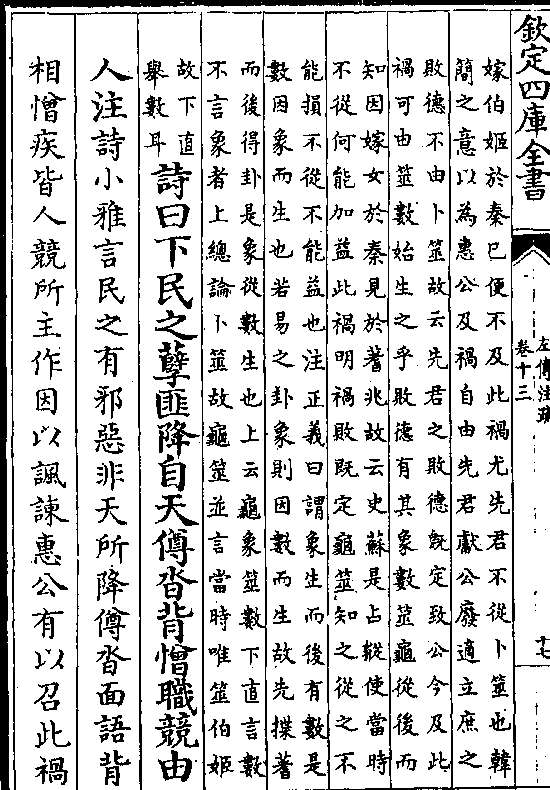 欽定四庫全書
左傳注疏
卷十三
十七
嫁伯姬於秦已便不及此禍尤先君不從卜筮也韓
簡之意以為惠公及禍自由先君獻公廢適立庶之
敗德不由卜筮故云先君之敗德旣定致公今及此
禍可由筮數始生之乎敗德有其象數筮龜從後而
知因嫁女於秦見於蓍兆故云史蘇是占縱使當時
不從何能加益此禍明禍敗既定龜筮知之從之不
能損不從不能益也注正義曰謂象生而後有數是
數因象而生也若易之卦象則因數而生故先揲蓍
而後得卦是象從數生也上云龜象筮數下直言數
不言象者上總論卜筮故龜筮並言當時唯筮伯姬
故下直
舉數耳
詩曰下民之孽匪降自天僔沓背憎職競由
人注詩小雅言民之有邪惡非天所降僔沓面語背
相憎疾皆人競所主作因以諷諫惠公有以召此禍